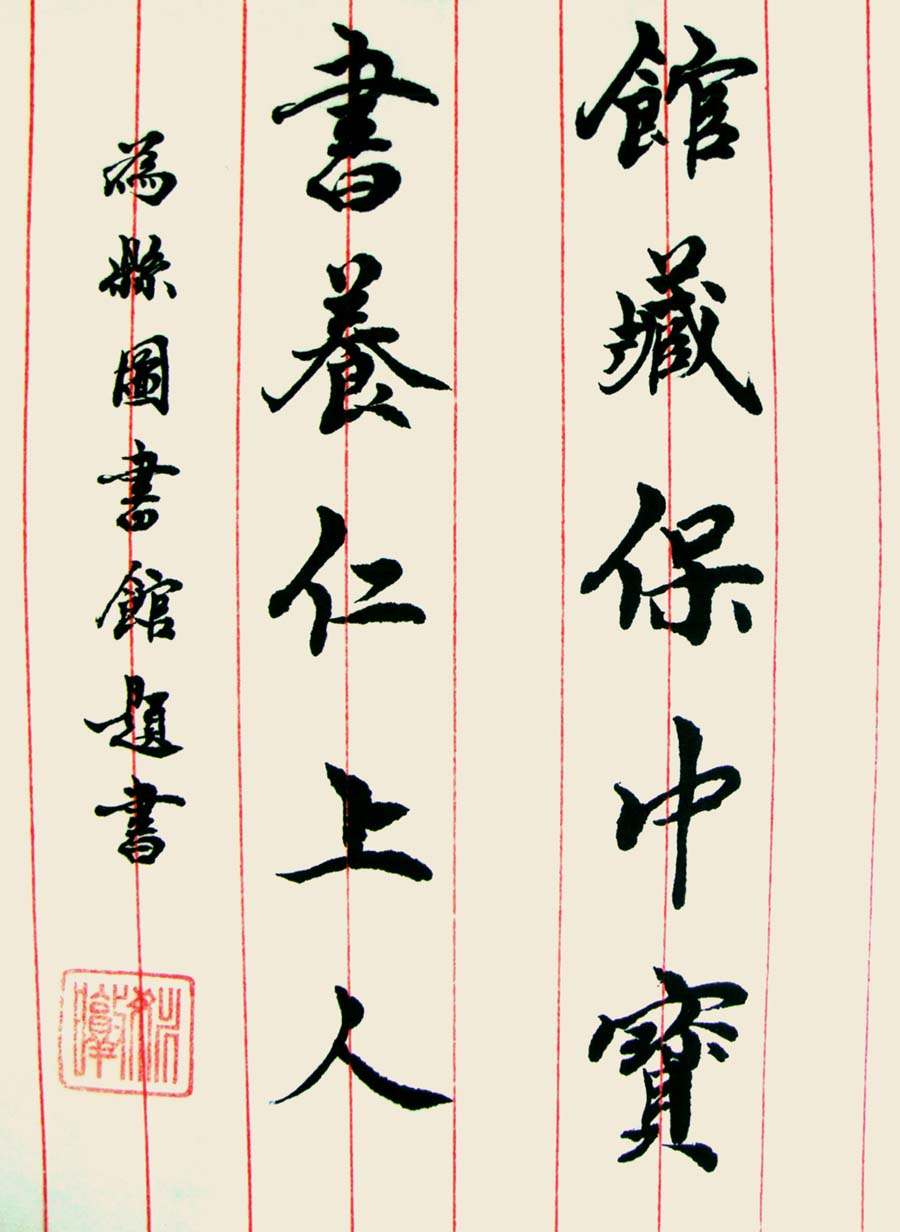 館藏保中寶
書養仁上人
為縣圖書館題書